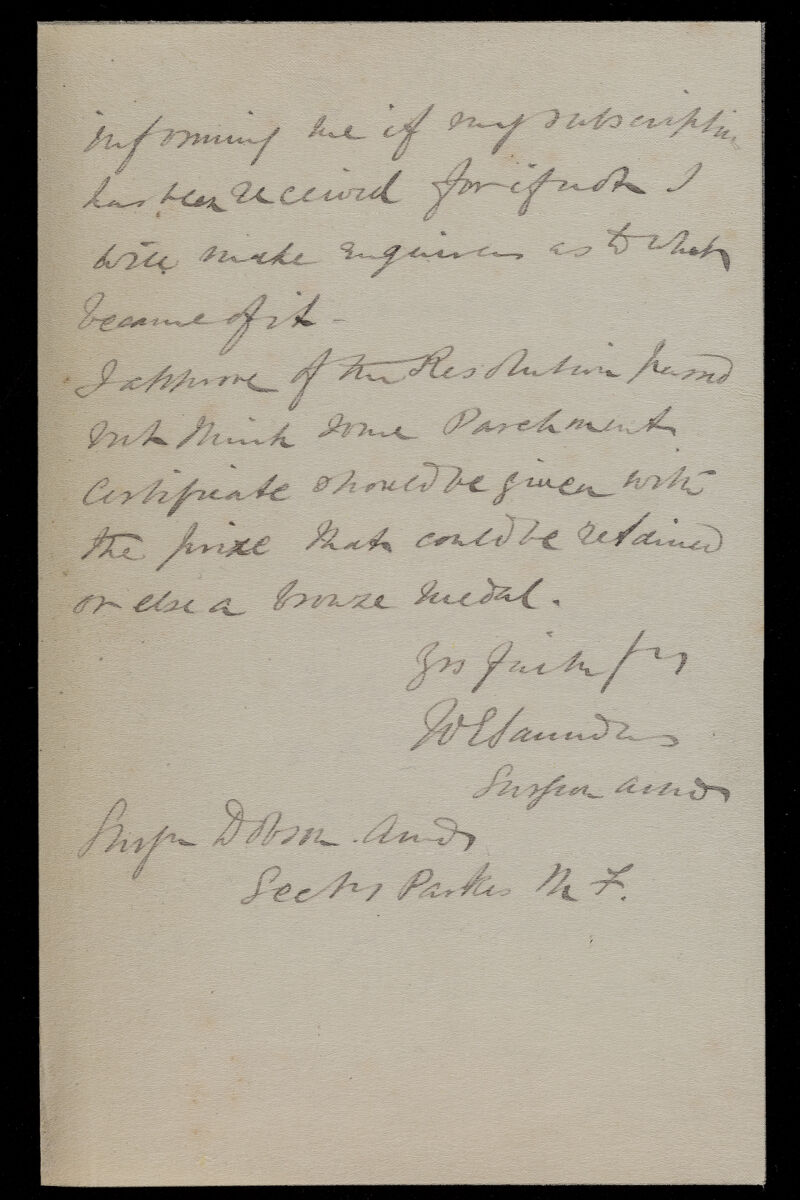 informing me if my subscription
has been received for if not I
will make enquiries as to what
became of it -
I approve of the Resolution passed
but think some Parchment
Certificate should be given with
the prize that could be retained
or else a bronze medal.
Yrs faithfly
WESaunders
Surgeon AMD
Surgn Dobson. AMD
Secty Parkes M F.